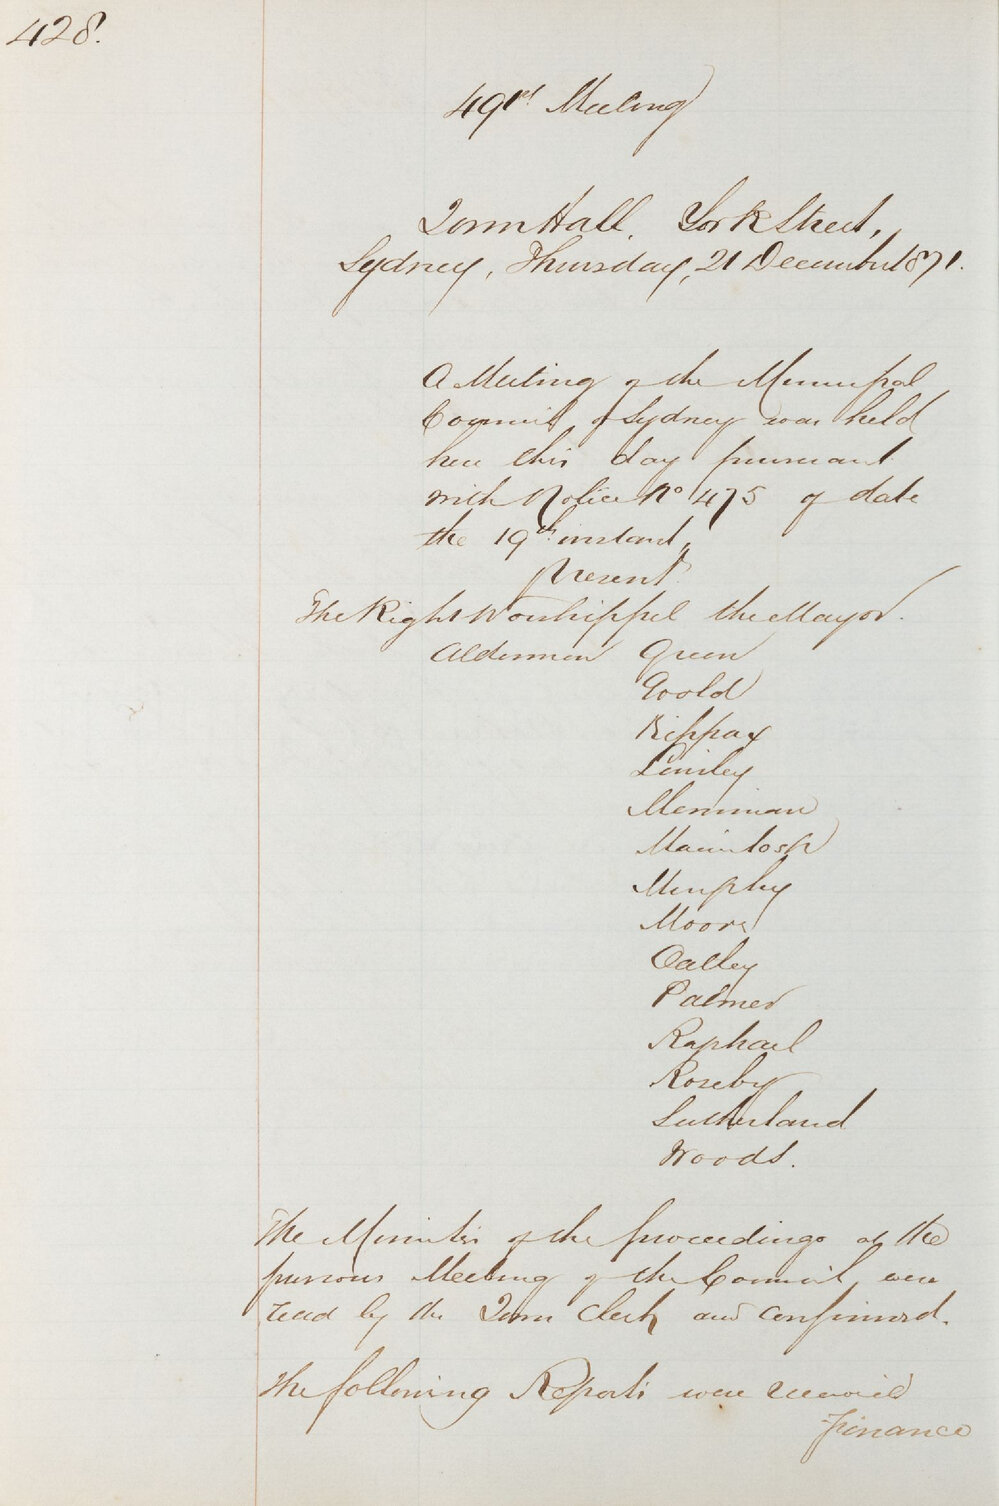 428.
49st Meeting
Town Hall, York Street,
Sydney, Thursday, 21 December 1871.
A Meeting of the Municipal
Council of Sydney was held
here this day pursuant
with Notice No 475 of date
the 19th instant,
present.
The Right Worshippful the Mayor.
Aldermen Green
Goold
Kippax
Linsley
Merriman
Macintosh
Murphy
Moore
Oatley
Palmer
Raphael
Roseby
Sutherland
Woods.
The Minutes of the proceedings at the
previous Meeting of the Council were
read by the Town Clerk and confirmed.
The following Reports were received
Finance